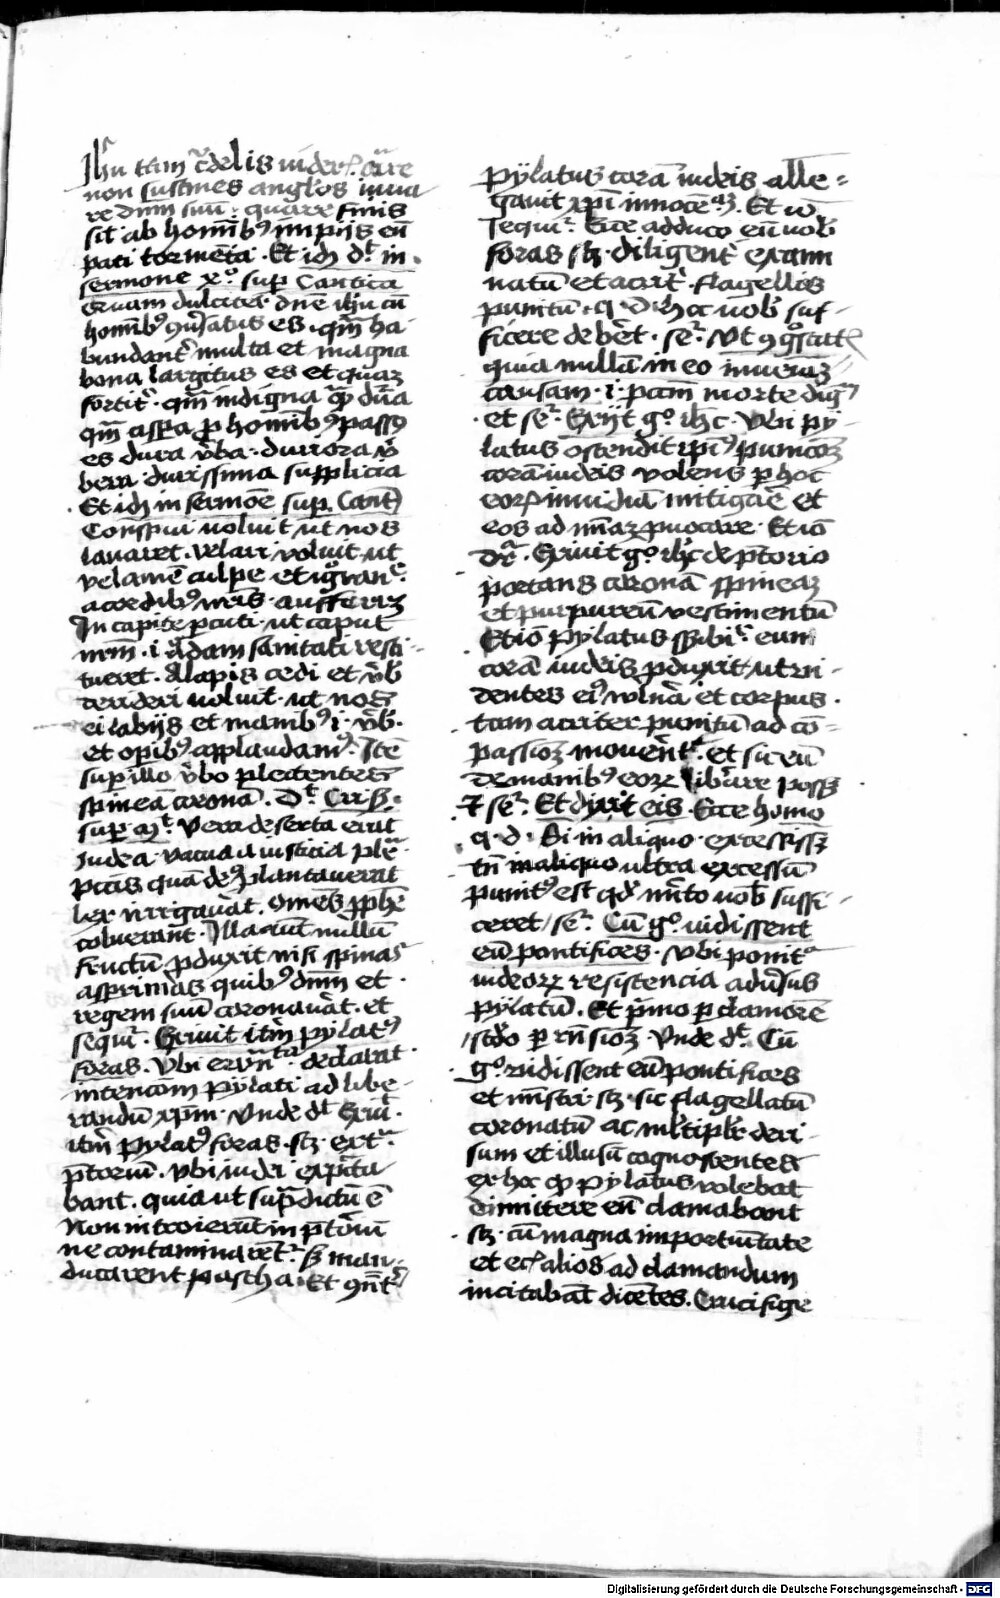 Ihu tam c̄delis uideri. Cur̄e
non sustines anglos iuua
re dnm suū. quare sinis
sit ab hominibꝰ impijs eū
pati tormēta. Et idꝫ dt in
sermone xo. sup Cantica
Quam dulciter dne ihu cū
hominibꝰ ꝯuersatus es. qm̄ ha
bundantr multa et magna
bona largitus es et quaꝫ
fortitr. qm̄ indigna qꝫ dura
qm̄ aspa ꝓ hominibꝰ passꝰ
es dura vba. duriora v
bera. durissima supplicia
Et idꝫ in sermōe sup Cant
Conspui uoluit ut nos
lauaret. velari voluit ut
velamē culpe et ignoranc̄
a cordibꝰ nris. aufferrꝫ
In capite pcuti ut caput
nrm .i. adam sanitati resti-
tueret. Alapis cedi et vb
derideri uoluit. ut nos
ei labijs et manibꝰ .i. vb.
et opibꝰ applaudamꝰ. Itē
sup illo vbo plectentes
spineā coronā. Dt Cris.
sup mt. Vera deserta erat
iudea. vacua a iusticia plē
pctis quā deꝰ plantauerat
lex irrigauat. Omēs pphe
coluerant. Illa aut nullū
fructū pduxit nisi spinas
asprimas quibꝰ dnm et
regem suū coronauāt. et
sequr. Exiuit itm pylatꝰ
foras. Ubi ewngta declarat
intencōm pylati ad libe-
randū xpm. Unde dt Exiut
itm pylatꝰ foras. sꝫ. extra
ptoriū. vbi iudei expecta
bant. quia ut supradictū ē
Non introierūt in ptoriū
ne contaminarētr. sꝫ man-
ducarent pascha. Et ꝯuētr
pylatus corā iudeis alle-
gauit xpi innocēaꝫ. Et iō
sequir. Ecce adduco eū uob
foras sꝫ. diligentr exami
natū et acritr. flagellis
punitū. q. d. hoc uob suf-
ficere debet. ser. Ut ꝯgscatꝭ
quia nullā in eo inueniaꝫ
causam .i. pctam morte digꝫ
et ser. Exijt go ihc. Ubi py-
latus ostendit xpm punitoꝫ
corā iudeis volens p hoc
eorꝫ inuidiā mitigare et
eos ad miaꝫ puocare. Et iō
dr. Exiuit go ihc de ptorio
portans coronā spineaꝫ
et purpureū vestimentū
Et iō pylatus exibuit eum
corā iudeis pduxit ut ui-
dentes eiꝰ vulna et corpus
tam acriter punitū ad cō-
passioꝫ mouerētr. et sic eū
de manibꝰ eorꝫ liberare possꝫ
⁊ ser. Et dixit eis Ecce homo
q. d. Si in aliquo excessissꝫ
tn in aliquo ultra excessū
punitꝰ est qd mito uob suffi-
ceret / ser. Cum go uidissent
eū pontifices. Ubi ponitr
iudeorꝫ resistencia adusus
pylatū. Et pmo p clamorē
scdo p rnsioꝫ. Unde dt. Cū
go uidissent eū pontifices
et mistri. sꝫ. sic flagellatū
coronatū ac multiplr deri-
sum et illusū cognoscentes
ex hoc qꝫ pylatus volebat
dimittere eū clamabant
sꝫ. cū magna importunitate
et eciā alios ad clamandum
incitabāt dicētes. Crucifige
Digitalisierung gefördert durch die Deutsche Forschungsgemeinschaft - DFG